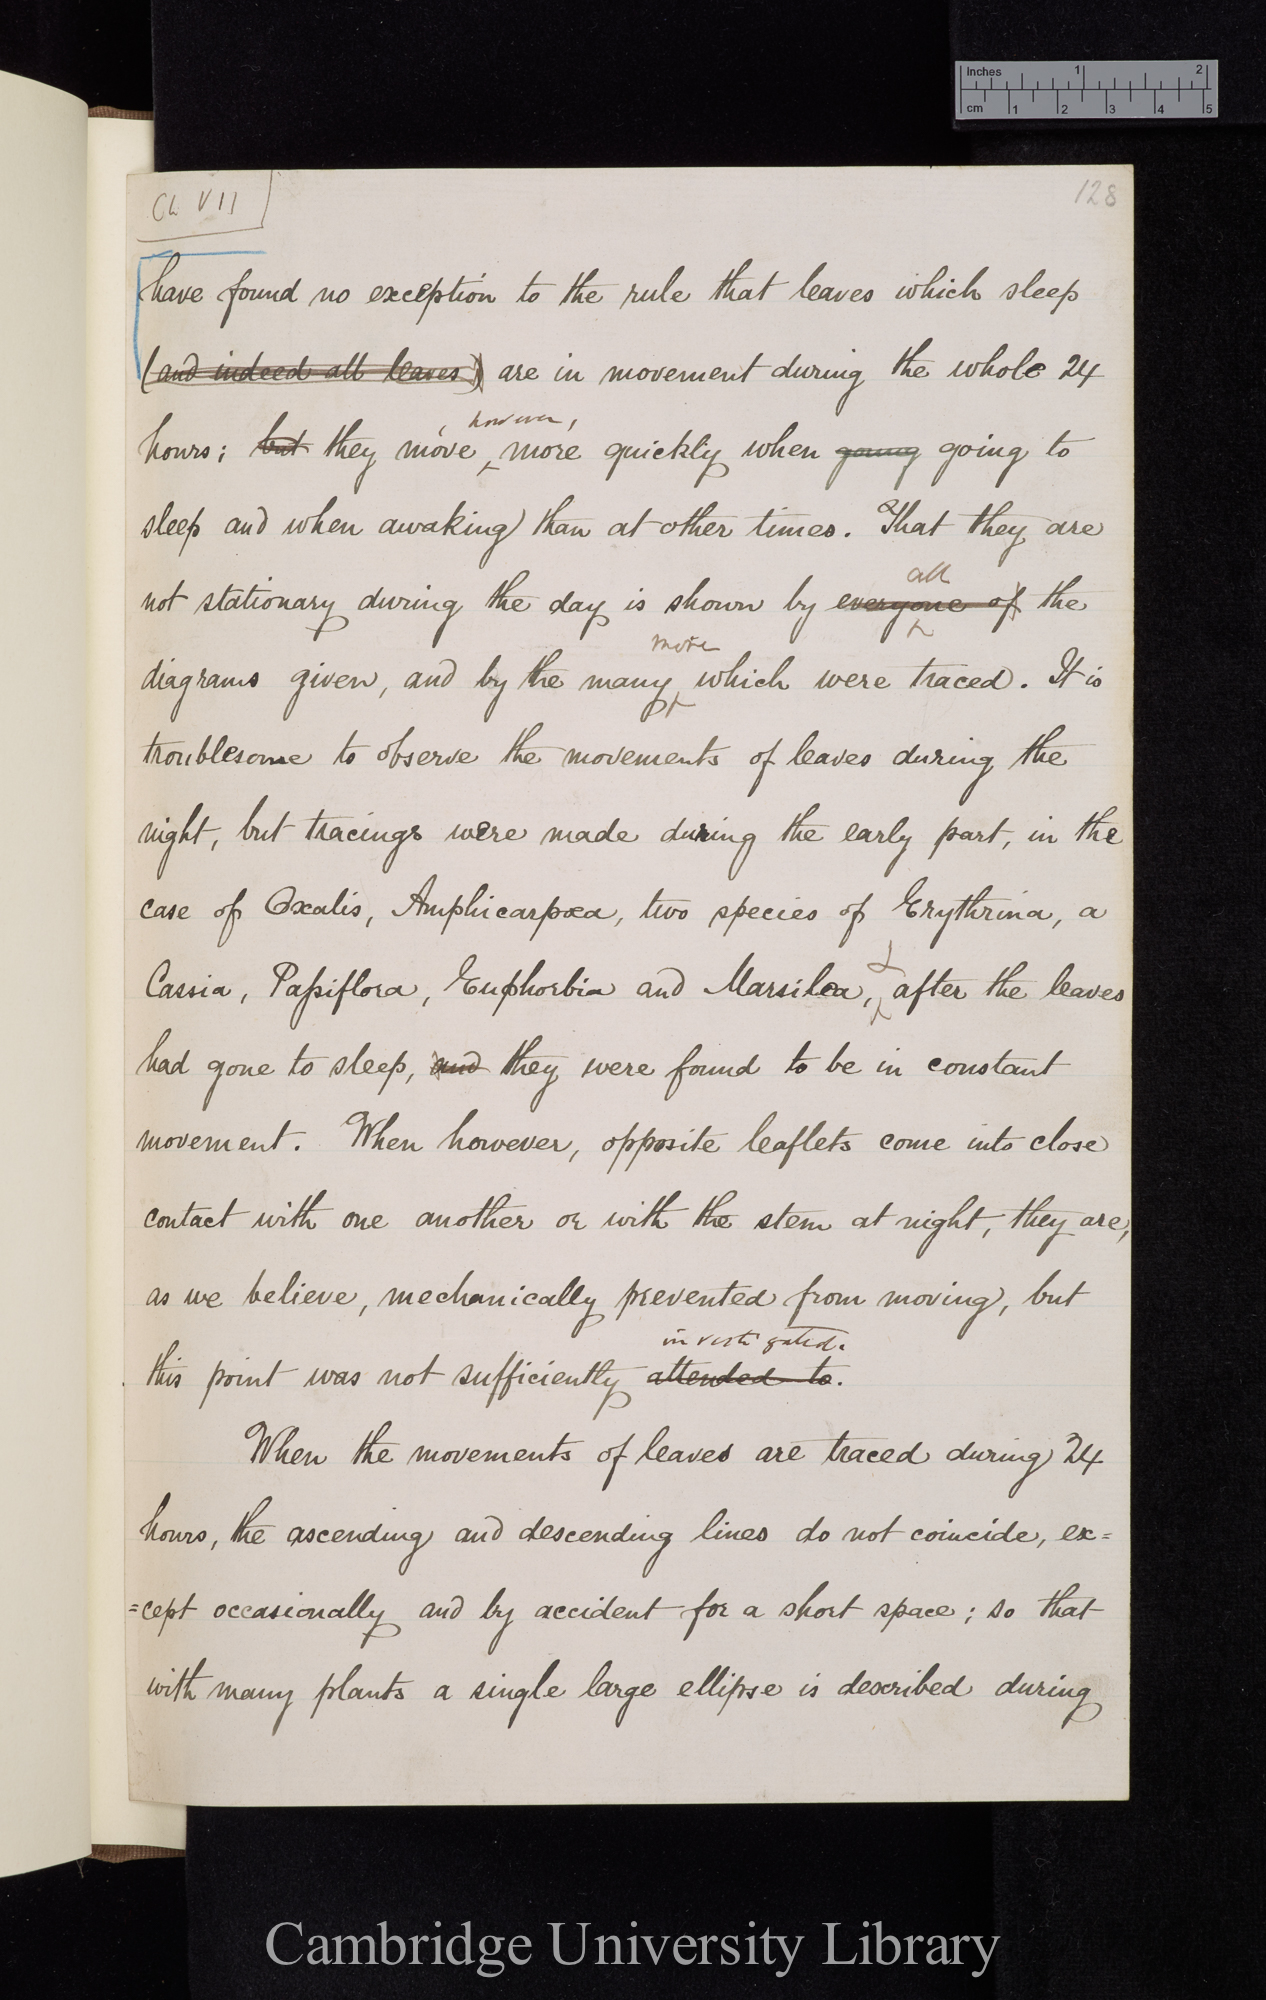 inches 1 2
cm 1 2 3 4 5
Ch VII
128
have found no exception to the rule that leaves which sleep
(and indeed all leaves) are in movement during the whole 24
however,
hours; but they move, more quickly when going going to
sleep and when awaking than at other times. That they are
all
not stationary during the day is shown by everyone of the
more
diagrams given, and by the many which were traced. It is
troublesome to observe the movements of leaves during the
night, but tracings were made during the early part, in the
case of Oxalis, Amphicarpœa, two species of Erythrina, a
&
Cassia, Passiflora, Euphorbia and Marsilea, after the leaves
had gone to sleep, and they were found to be in constant
movement. When however, opposite leaflets come into close
contact with one another or with the stem at night, they are,
as we believe, mechanically prevented from moving, but
investigated.
this point was not sufficiently attended to.
When the movements of leaves are traced during 24
hours, the ascending and descending lines do not coincide, ex=
=cept occasionally and by accident for a short space; so that
with many plants a single large ellipse is described during
Cambridge University Library